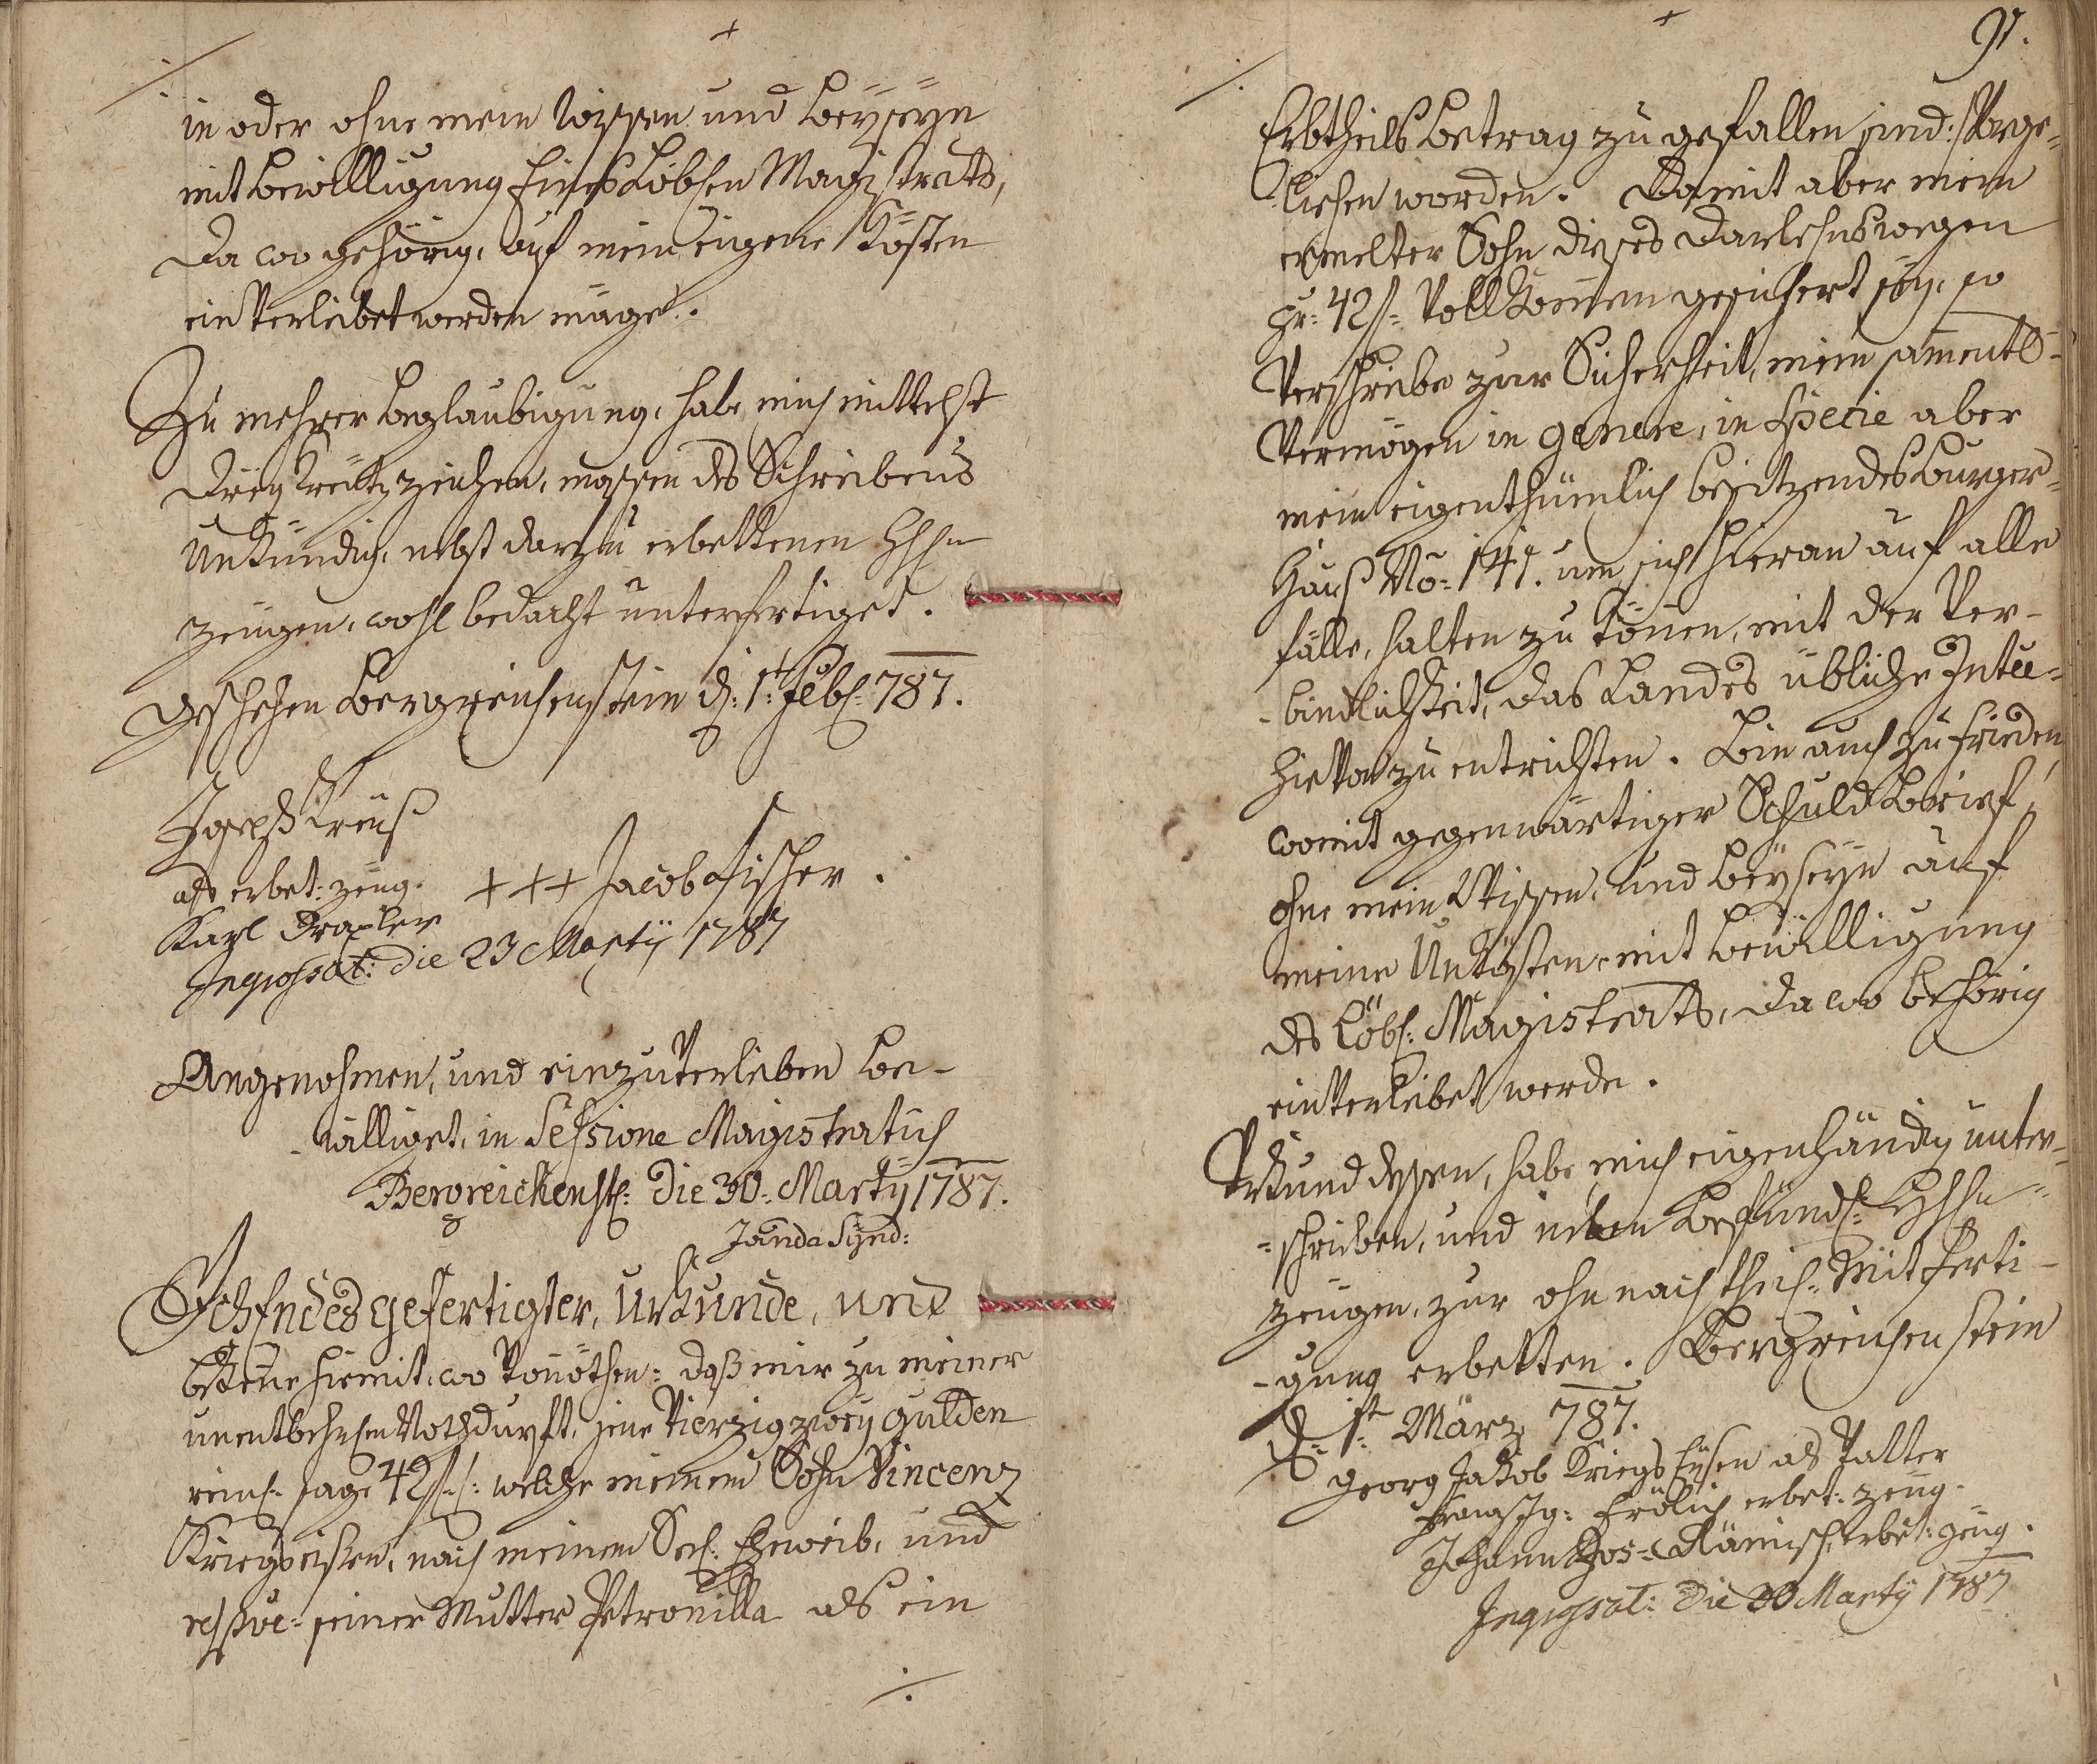 in oder ohne mein Wissen und Beyseyn
mit Bewilligung Eines Löbsen Magistrats,
da wo gehörig, auf mein eigene Kösten
ein Verleibet werden möge.
Zu mehrer Beglaubigung, habe mich mittelst
drey Kreütz zeichen, massen des Schreibens
unkündig, nebst darzu erbettenen
Zeügen, wohl bedacht unterfertiget.
Geschehen Bergreichenstein d: 1t Feb: 787.
Joseph Kreüß
als erbet: zeüg.
+++ Jacob Fischer.
Karl Draxler
Ingrossat: die 23 Martÿ 1787
Angenohmen, und einzuverleiben be-
-williget, in Sessione Magistratus
Bergreichenst: die 30: Martÿ 1787.
Janda Sÿnd:
Ich Endesgefertigter, Urkunde, und
bekene hiemit, wo Vonöthen: daß mir zu meiner
unentbehrsen Nothdurft, jene Vierzig zweÿ gulden
reins: sage 42f: welche meinem Sohn Vincenz
Kriegseisen, nach meinem Seel: Eheweib, und
respve: seiner Mutter Petronilla als ein
91.
Erbtheils Betrag zu gefallen sind: Vorge-
-liehen worden. Damit aber mein
ermelter Sohn dieses Darlehns wegen
pr: 42f: Vollkomen gesichert seÿ, so
Verschreibe zur Sicherheit, mein samentl-
Vermögen in genere, in specie aber
mein eigenthümlich besitzendes Burger-
Hauß No: 141. um sich hieran auf alle
fälle, halten zu könen, mit der Ver-
-bindlichkeit, das Landes übliche Intee-
hievon zu entrichten. Bin auch zu frieden,
womit gegenwärtiger Schuld Brief,
ohne mein Wissen, und Beÿseÿn auf
meine Unkösten, mit Bewilligung
des Löbl: Magistrats, da wo behörig
ein Verleibet werde.
Urkund dessen, habe mich eigenhändig unter-
-schrieben, und neben
Zeügen, zur ohnnachtheil: Mitferti-
-gung erbetten. Bergreichenstein
d: 1t März 787.
Georg Jakob Kriegs Eÿsen als Vatter
Franz Ig: Frölich erbet: zeüg.
Johann Rämisch erbet: zeüg.
Ingrossat: die 30 Martÿ 1787